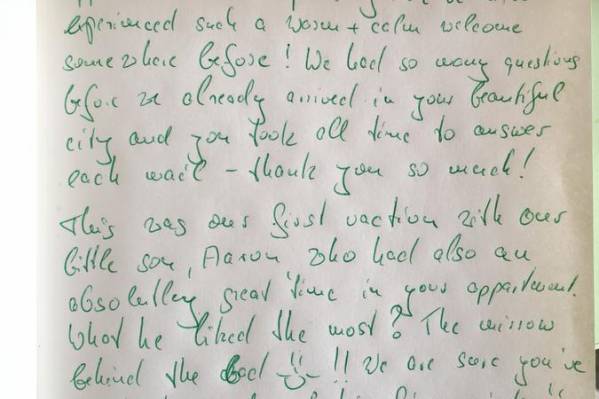 experienced such a warm + calm welcome
somewhere before! We had so many questions
before we already arrived in your beautiful
city and you took all time to answer
each mail - thank you so much!
This was our first vaction with our
little son, Aaron who had also an
absolutley great time in your appartement.
What he liked the most? The mirrow
behind the bed !! We are sure you've